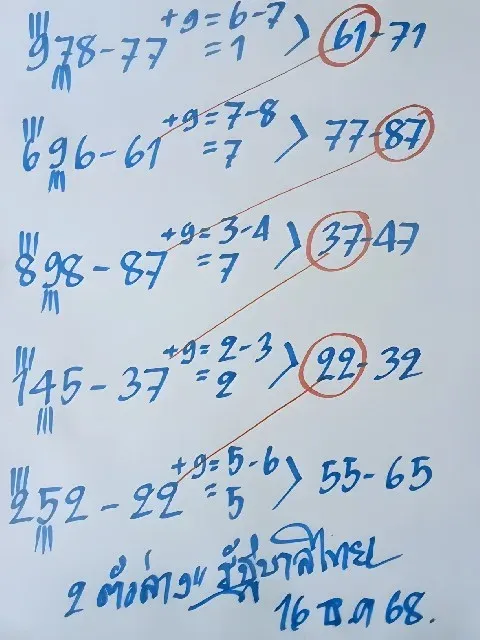 978-77 +9=6-7 > 61-71
=1
696-61 +9=7-8 > 77-87
=7
898-87 +9=3-4 > 37-47
=7
145-37 +9=2-3 > 22-32
=2
252-22 +9=5-6 > 55-65
=5
2 ตัวล่าง" รัฐบาลไทย
16 ธ ค 68.